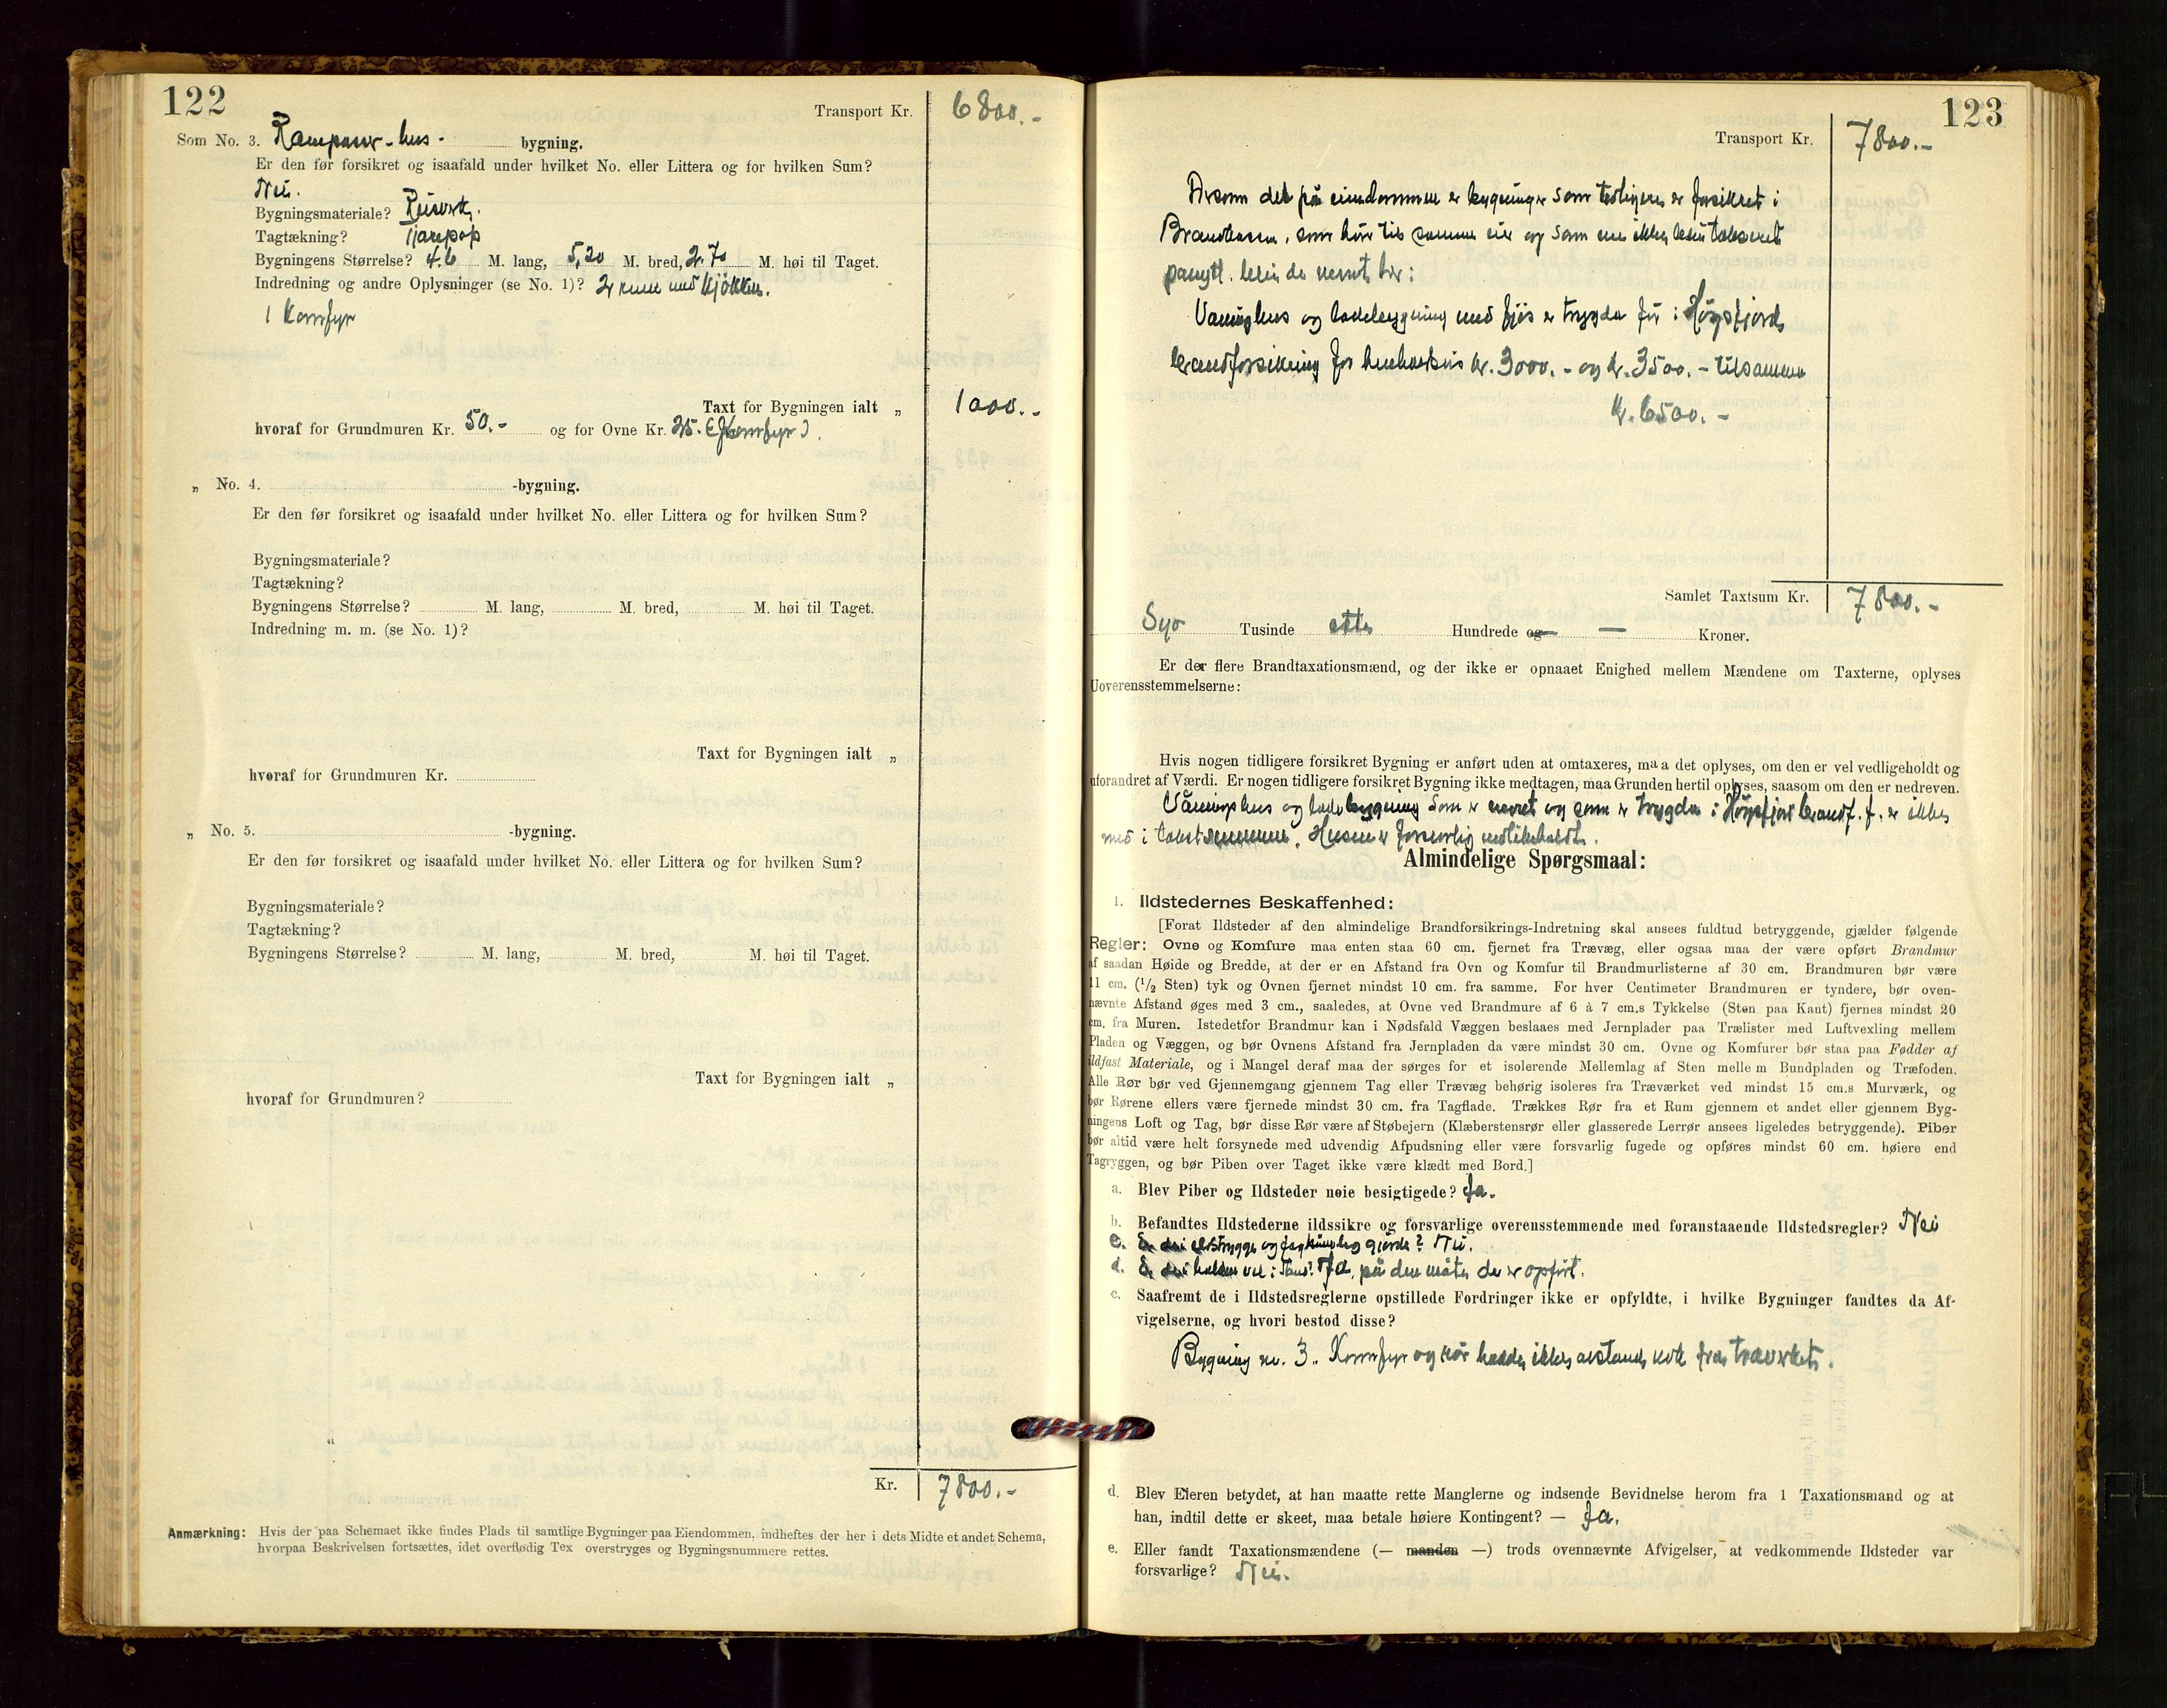 122
Transport Kr. 6800.-
Som No. 3. hus. bygning.
Er den før forsikret og isaafald under hvilket No. eller Littera og for hvilken Sum?
Nei.
Bygningsmateriale? Reisverk.
Tagtækning? Tjærepap
Bygningens Størrelse? 4.6 M. lang, 5,20 M. bred, 2.70 M. høi til Taget.
Indredning og andre Oplysninger (se No. 1)? 2 rum med kjøkken.
1 Komfyr
Taxt for Bygningen ialt „ 1000.-
hvoraf for Grundmuren Kr. 50.- og for Ovne Kr. 25. (Komfyr).
„ No. 4. -bygning.
Er den før forsikret og isaafald under hvilket No. eller Littera og for hvilken Sum?
Bygningsmateriale?
Tagtækning?
Bygningens Størrelse? M. lang, M. bred, M. høi til Taget.
Indredning m. m. (se No. 1)?
Taxt for Bygningen ialt „
hvoraf for Grundmuren Kr.
„ No. 5. -bygning.
Er den før forsikret og isaafald under hvilket No. eller Littera og for hvilken Sum?
Bygningsmateriale?
Tagtækning?
Bygningens Størrelse? M. lang, M. bred, M. høi til Taget.
Taxt for Bygningen ialt „
hvoraf for Grundmuren?
Kr. 7800.-
Anmærkning: Hvis der paa Schemaet ikke findes Plads til samtlige Bygninger paa Eiendommen, indheftes der her i dets Midte et andet Schema,
hvorpaa Beskrivelsen fortsættes, idet overflødig Tex overstryges og Bygningsnummere rettes.
123
Transport Kr. 7800.-
Dersom det på eiendommen er bygninger som tidligere er forsikret i
Brandkassen, som hører til samme eier og som ikke takseret
påny, de nevnt her:
Våningshus og ladebygning med fjøs er trygda før i Høgsfjord
brandforsikring for henholdsvis kr. 3000.- og kr. 3500.- tilsammen
kr. 6500.-
Samlet Taxtsum Kr. 7800.-
Syv Tusinde atte Hundrede og — Kroner.
Er der flere Brandtaxationsmænd, og der ikke er opnaaet Enighed mellem Mændene om Taxterne, oplyses
Uoverensstemmelserne:
Hvis nogen tidligere forsikret Bygning er anført uden at omtaxeres, maa det oplyses, om den er vel vedligeholdt og
uforandret af Værdi. Er nogen tidligere forsikret Bygning ikke medtagen, maa Grunden hertil oplyses, saasom om den er nedreven.
Våningshus og ladebygning som er nevnt og som er trygda i Høgsfjord brandf. f. er ikke
med i takstsummen. Husene er forsvarlig vedlikeholdt.
Almindelige Spørgsmaal:
1. Ildstedernes Beskaffenhed:
[Forat Ildsteder af den almindelige Brandforsikrings-Indretning skal ansees fuldtud betryggende, gjælder følgende
Regler: Ovne og Komfure maa enten staa 60 cm. fjernet fra Trævæg, eller ogsaa maa der være opført Brandmur
af saadan Høide og Bredde, at der er en Afstand fra Ovn og Komfur til Brandmurlisterne af 30 cm. Brandmuren bør være
11 cm. (1/2 Sten) tyk og Ovnen fjernet mindst 10 cm. fra samme. For hver Centimeter Brandmuren er tyndere, bør oven-
nævnte Afstand øges med 3 cm., saaledes, at Ovne ved Brandmure af 6 à 7 cm.s Tykkelse (Sten paa Kant) fjernes mindst 20
cm. fra Muren. Istedetfor Brandmur kan i Nødsfald Væggen beslaaes med Jernplader paa Trælister med Luftvexling mellem
Pladen og Væggen, og bør Ovnens Afstand fra Jernpladen da være mindst 30 cm. Ovne og Komfurer bør staa paa Fødder af
ildfast Materiale, og i Mangel deraf maa der sørges for et isolerende Mellemlag af Sten melle m Bundpladen og Træfoden.
Alle Rør bør ved Gjennemgang gjennem Tag eller Trævæg behørig isoleres fra Træværket ved mindst 15 cm.s Murværk, og
bør Rørene ellers være fjernede mindst 30 cm. fra Tagflade. Trækkes Rør fra et Rum gjennem et andet eller gjennem Byg-
ningens Loft og Tag, bør disse Rør være af Støbejern (Klæberstensrør eller glasserede Lerrør ansees ligeledes betryggende). Piber
bør altid være helt forsynede med udvendig Afpudsning eller være forsvarlig fugede og opføres mindst 60 cm. høiere end
Tagryggen, og bør Piben over Taget ikke være klædt med Bord.]
a. Blev Piber og Ildsteder nøie besigtigede? Ja.
b. Befandtes Ildstederne ildssikre og forsvarlige overensstemmende med foranstaaende Ildstedsregler? Nei
c. Er dei eldstrygge og fagkunnleg gjorde? Nei.
d. Er dei haldne vel i stand? Ja, på den måte de er opført.
c. Saafremt de i Ildstedsreglerne opstillede Fordringer ikke er opfyldte, i hvilke Bygninger fandtes da Af-
vigelserne, og hvori bestod disse?
Bygning nr. 3. Komfyr og rør hadde ikke avstand nok fra treverket.
d. Blev Eieren betydet, at han maatte rette Manglerne og indsende Bevidnelse herom fra 1 Taxationsmand og at
han, indtil dette er skeet, maa betale høiere Kontingent? — Ja.
e. Eller fandt Taxationsmændene (— manden —) trods ovennævnte Afvigelser, at vedkommende Ildsteder var
forsvarlige? Nei.